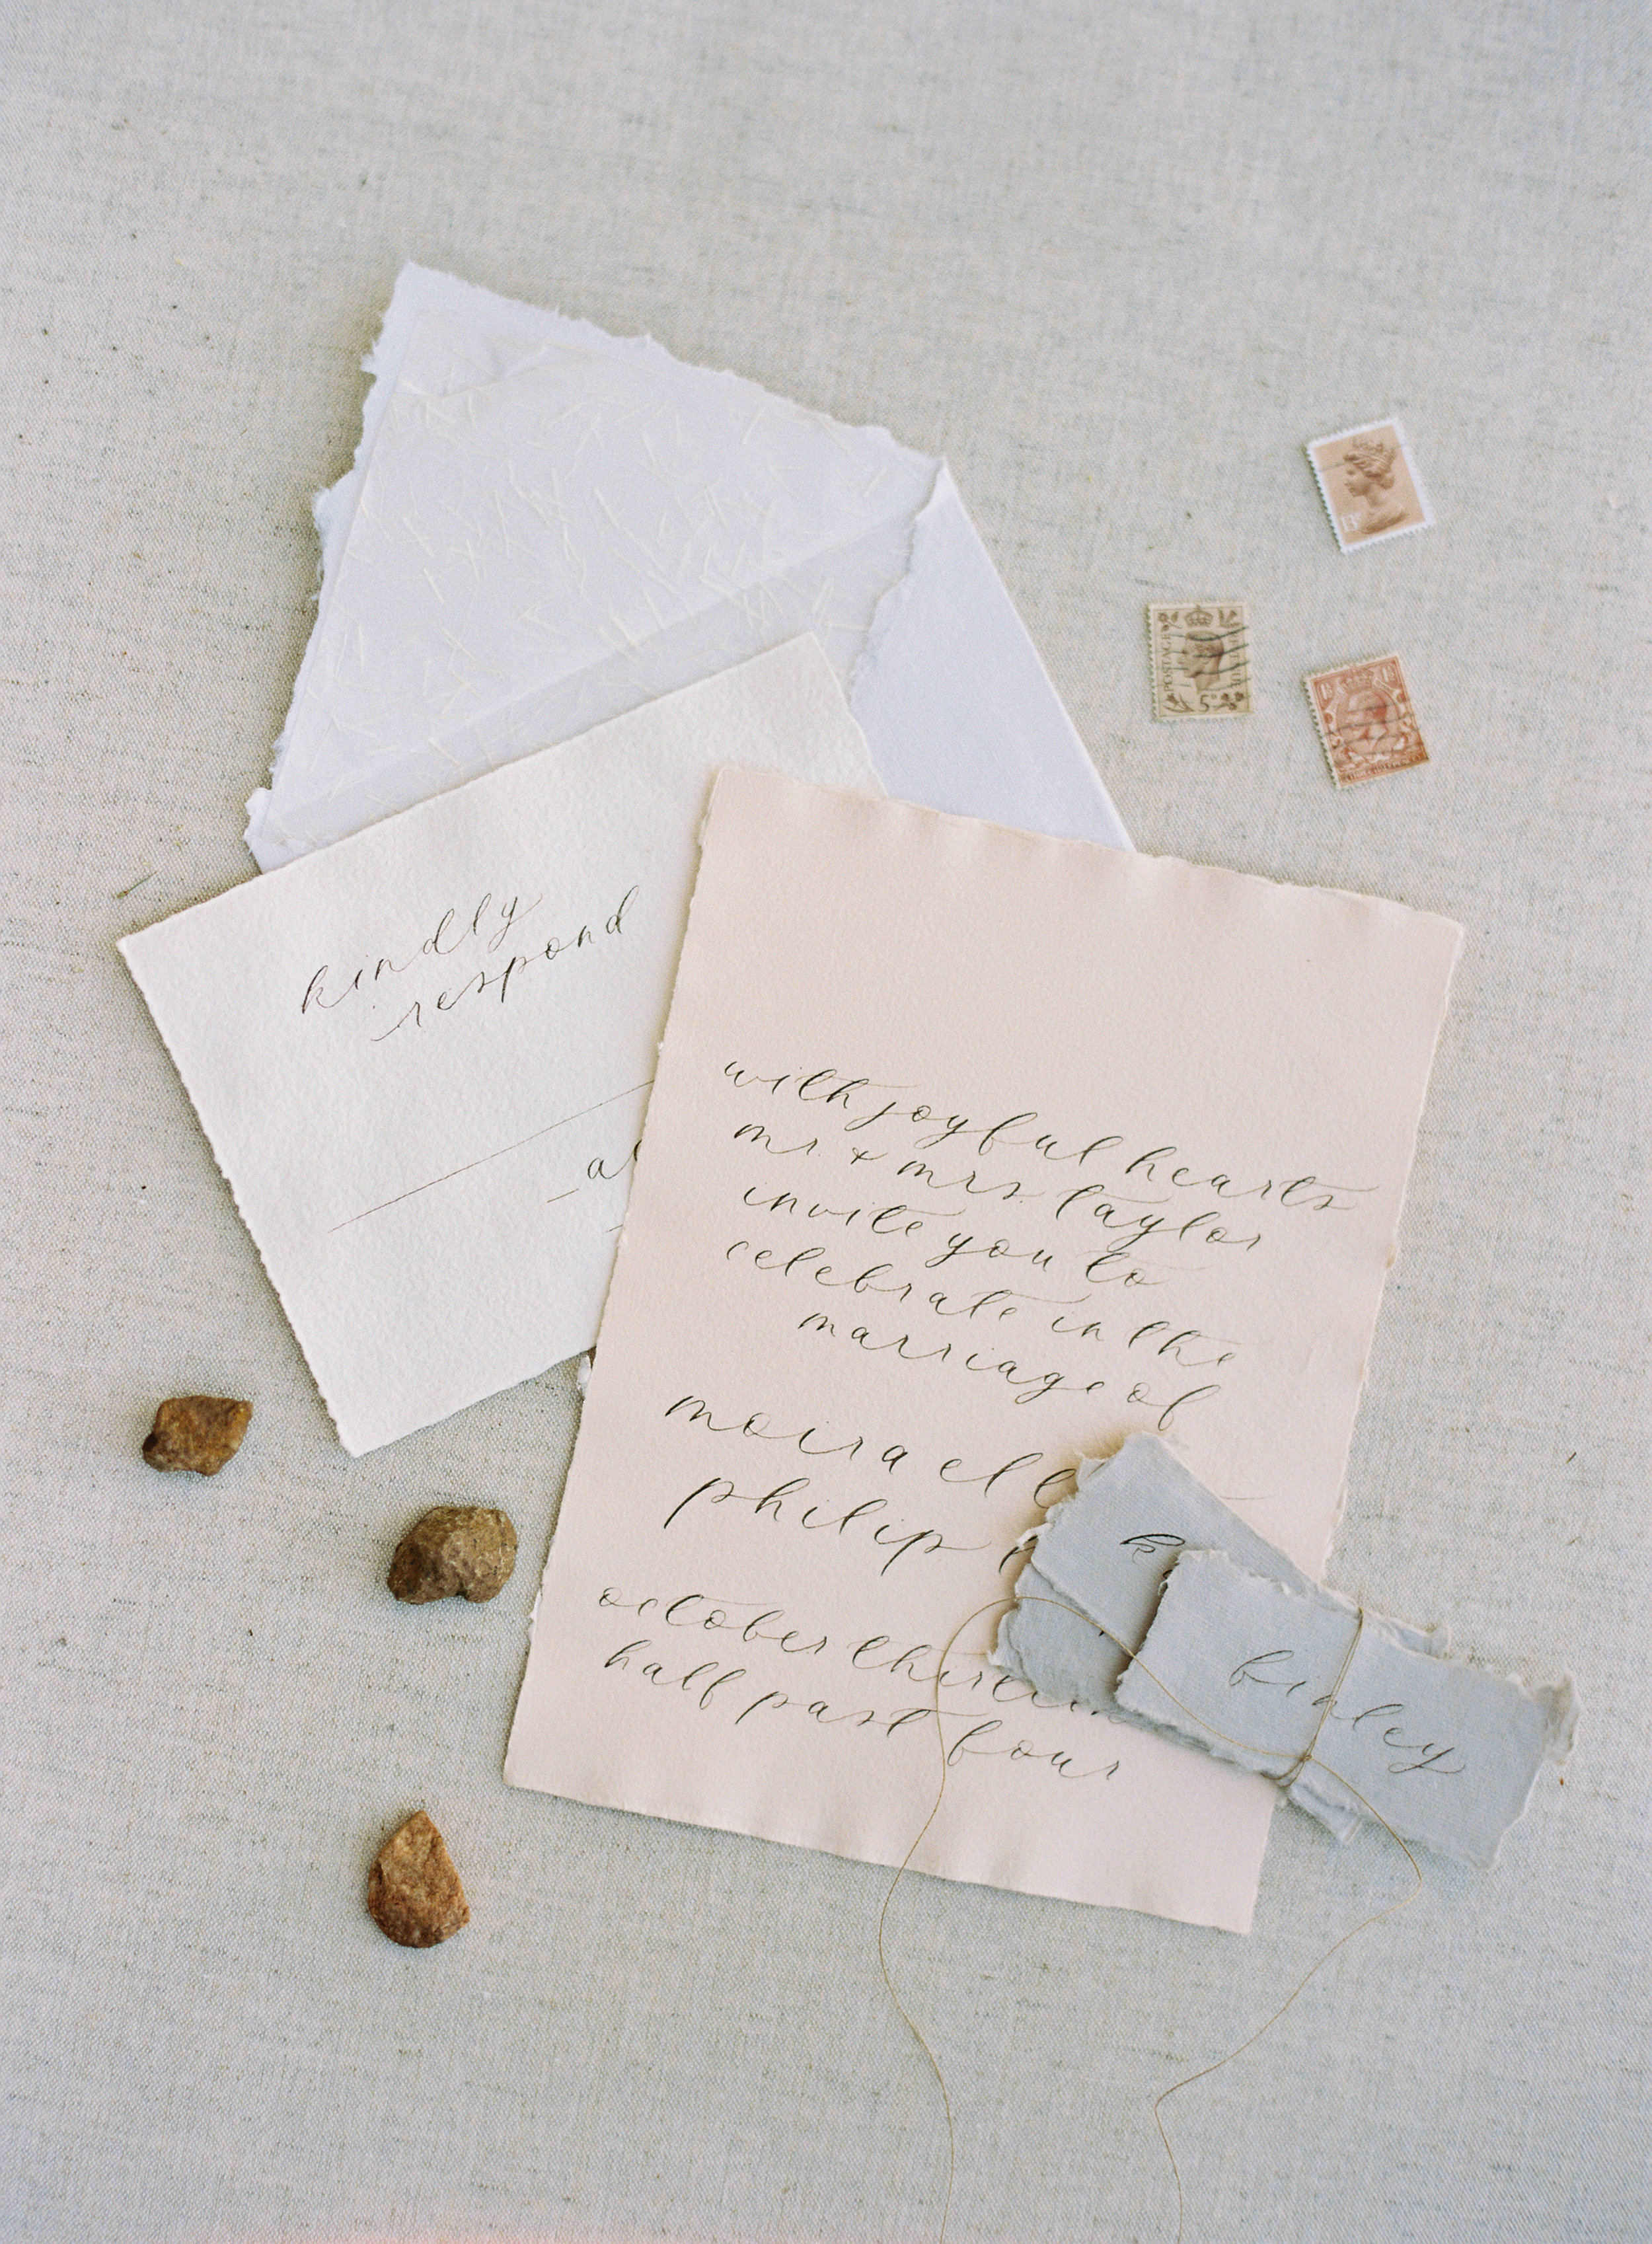 kindly
respond
with joyful hearts
mr & mrs. taylor
invite you to
celebrate in the
marriage of
moira
philip
october
half past four
finley
POSTAGE
5
13